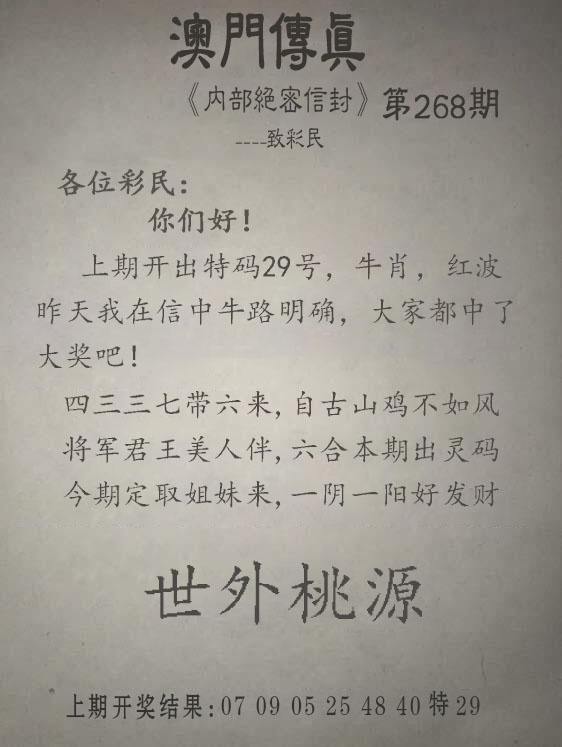 澳門傳真
《内部絕密信封》第268期
----致彩民
各位彩民：
你们好！
上期开出特码29号，牛肖，红波
昨天我在信中牛路明确，大家都中了
大奖吧！
四三三七带六来,自古山鸡不如风
将军君王美人伴,六合本期出灵码
今期定取姐妹来,一阴一阳好发财
世外桃源
上期开奖结果:07 09 05 25 48 40 特29